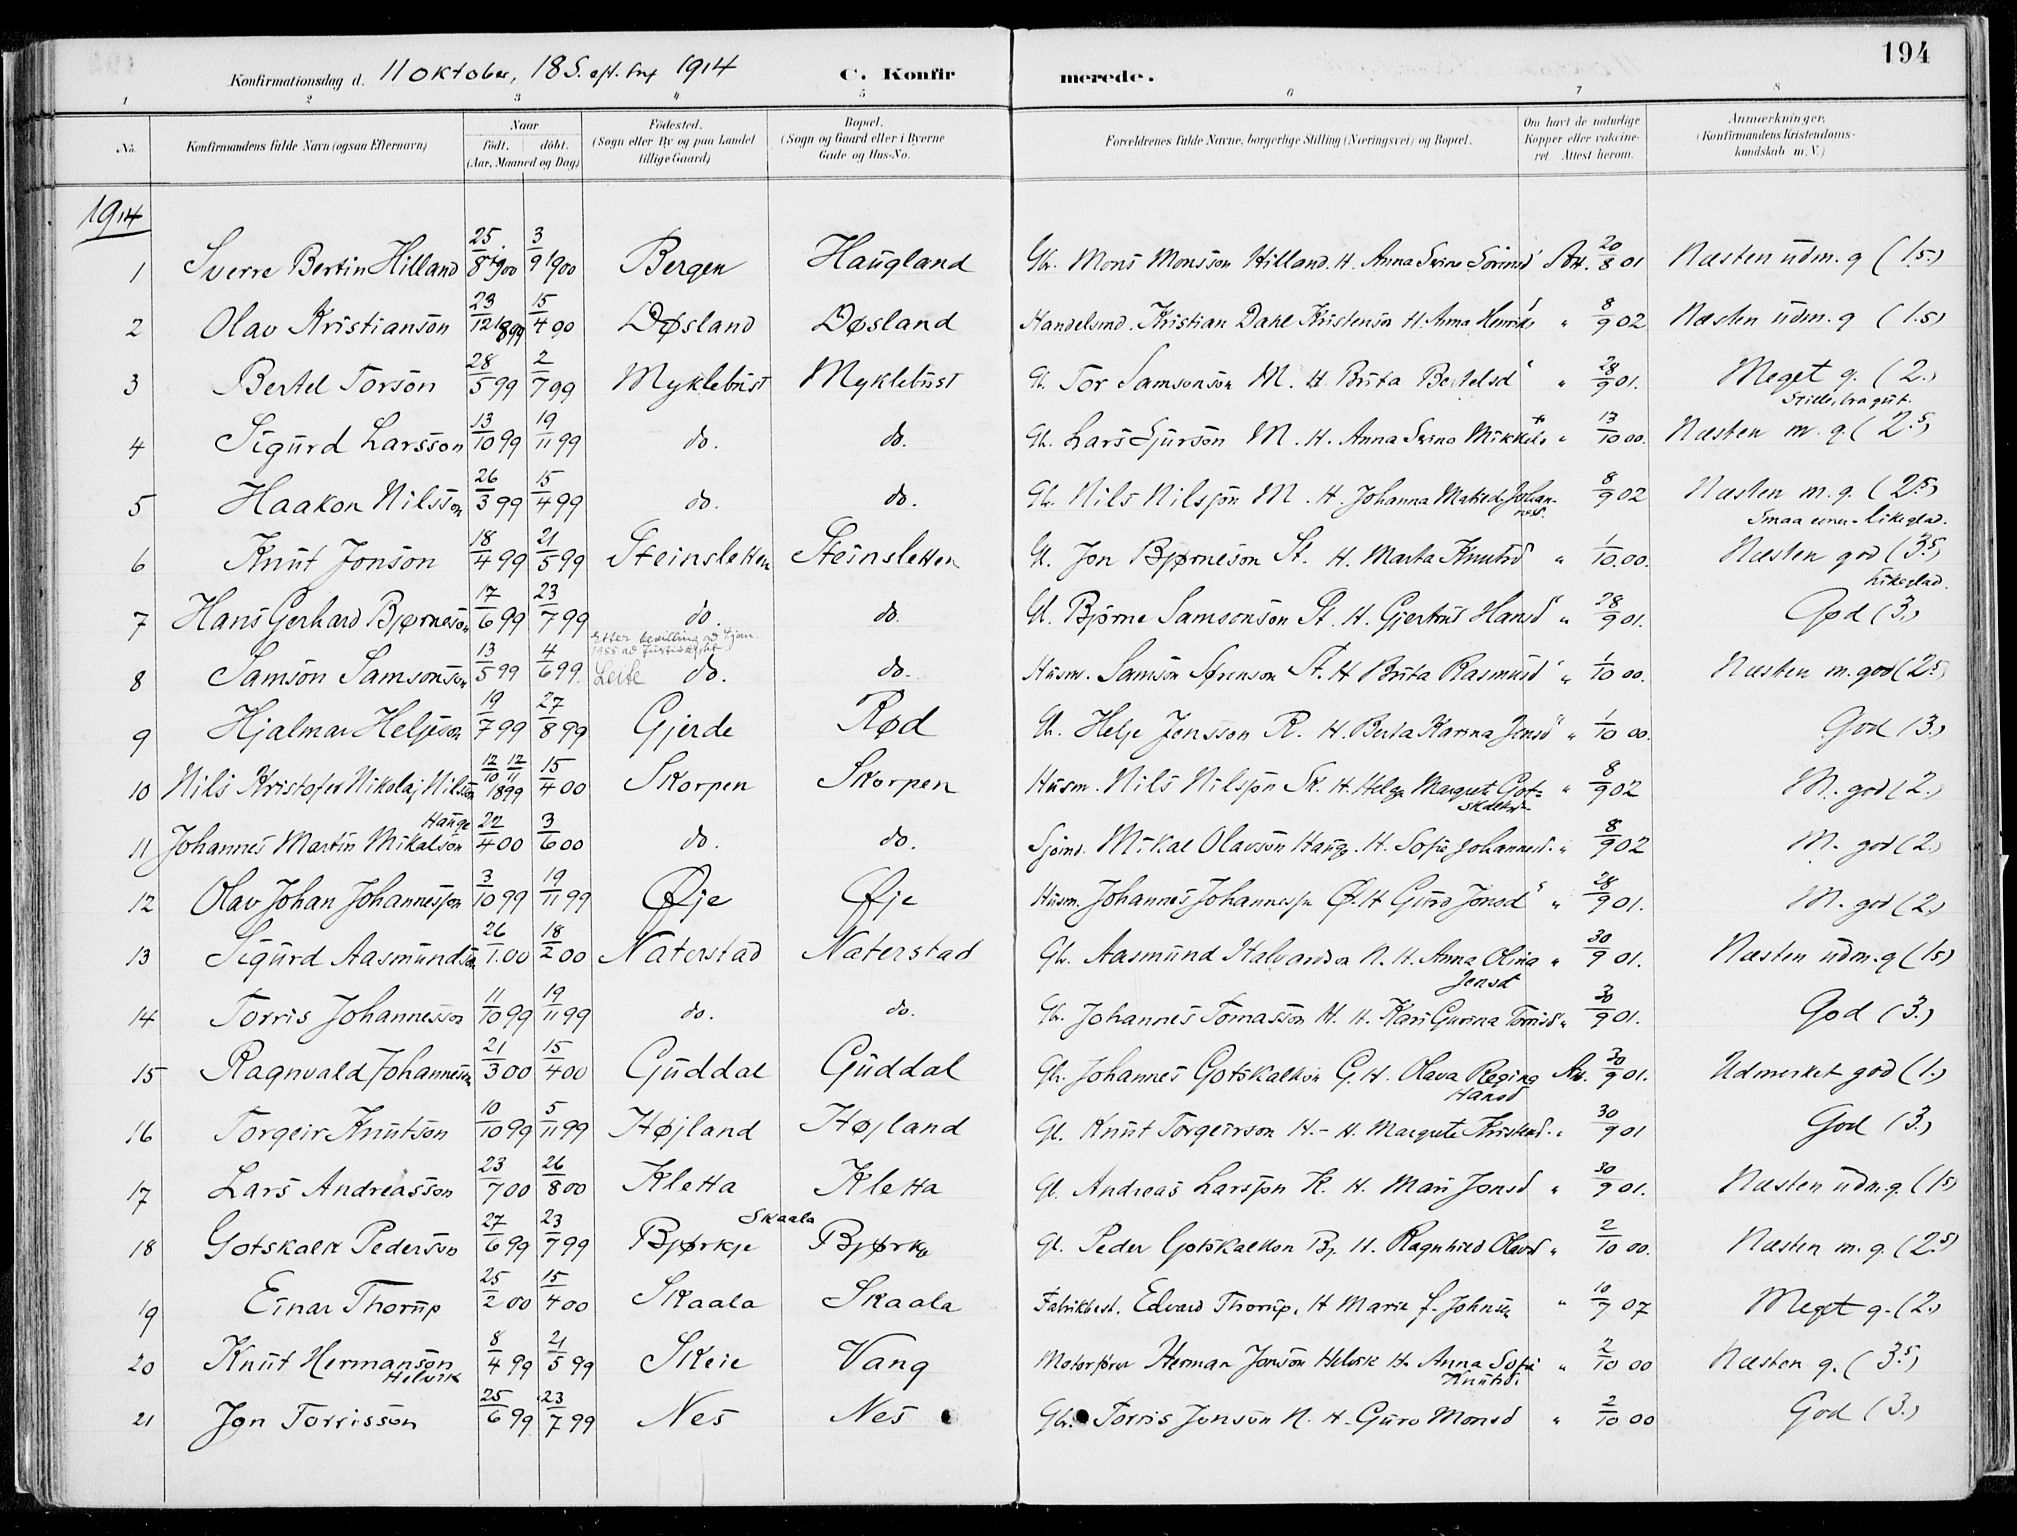 194
Konfirmationsdag d. 11 Oktober, 18 S. eft. 1914 C. Konfirmerede.
1 2 3 4 5 6 7 8
No. Konfirmandens fulde Navn (ogsaa Efternavn) Naar født. døbt. (Aar, Maaned og Dag) Fødested. (Sogn eller By og paa Landet tillige Gaard) Bopæl. (Sogn og Gaard eller i Byerne Gade og Hus-No. Forældrenes fulde Navne, borgerlige Stilling (Næringsvei) og Bopæl. Om havt de naturlige Kopper eller vakcineret. Attest herom. Anmærkninger. (Konfirmandens Kristendomskundskab m. V.)
1914
1 Sverre Bertin Hilland 25/8 1900 3/9 1900 Bergen Haugland Gb. Mons Monsson Hilland. H. Anna Att. 20/8 01 Næsten udm. g (1.5)
2 Olav Kristianson 23/12 1899 15/4 00 Døsland Døsland Handelsmd. Kristian Dahl Kristenson H. Anna Henriks " 8/9 02 Næsten udm. g (1.5)
3 Bertel Torson 28/5 99 2/7 99 Myklebust Myklebust Gb. Tor Samsonson M. H. Brita Bertelsd " 28/9 01. Meget g. (2.)
4 Sigurd Larsson 13/10 99 19/11 99 do. do. Gb. Lars Sjurson M. H. Anna Mikkels " 13/10 00. Næsten m. g. (2.5)
5 Haakon Nilsson 26/3 99 15/4 99 do. do. Gb. Nils Nilsson M. H. Johanna Johannesd. 8/9 02 Næsten m. g. (2.5)
6 Knut Jonson 18/4 99 21/5 99 Steinsletten Steinsletten Gl. Jon Bjørneson St. H. Marta Knutsd " 1/10.00. Næsten god (3.5) Likeglad.
7 Hans Gerhard Bjørneson 17/6 99 23/7 99 do. do. Gl. Bjørne Samsonson St. H. Gjertrud Hansd " 28/9 01. God (3.) Likeglad.
Etter bevilling
8 Samson Samsonson 13/5 99 4/6 99. Leite do. do. Husm. Samson Sørenson St. H Brita Rasmusd " 1/10 00. Næsten m. god (2.5)
9 Hjalmar Heljeson 19/7 99 27/8 99 Gjerde Rød Gb. Helje Jensson R. H. Berta Karina Jensd " 1/10 00. God (3.)
10 Nils Kristofer Nikolaj Nilsson 12/10 12/11 1899 15/4 00 Skorpen Skorpen Husm. Nils Nilsson Sk. H. Helga Margreta Gotskalksd " 8/9 02 M. god (2.)
11 Johannes Martin Mikalson Hauge 22/4 00 3/6 00 do. do. Sjømd. Mikal Olavson Hauge. H. Sofie Johannesd. " 8/9 02 M. god (2.)
12 Olav Johan Johannesson 3/10 99 19/11 99 Øje Øje Husm. Johannes Johannesson Ø. H Guro Jonsd " 28/9 01. M. god (2.)
13 Sigurd Aasmundson 26/1.00 18/2 00 Naterstad Naterstad Gb. Aasmund Halvardson N. H. Anna Olina Jensd " 30/9 01. Næsten udm. g (1.5)
14 Torris Johannesson 11/10 99 19/11 99 do. do. Gb. Johannes Tomasson N. H. Kari Gurina Torrisd " 30/9 01. God (3.)
15 Ragnvald Johannesson 21/3 00 15/4 00 Guddal Guddal Gb. Johannes Gotskalkson G. H. Olava Regina Hansd Att. 30/9 01. Udmerket god (1.)
16 Torgeir Knutson 10/10 99 5/11 99 Højland Højland Gl. Knut Torgeirson H. - H. Margreta Kristensd. " 30/9 01 God (3.)
17 Lars Andreasson 23/7 00 26/8 00 Kletta Kletta Gl. Andreas Larsson K. H. Mari Jonsd " 30/9 01. Næsten udm. g. (1.5)
18 Gotskalk Pedersson 27/6 99 23/7 99 Bjørkje Skaala Bjørkje Gl. Peder Gotskalkson Bj. H. Ragnhild Olavsd " 2/10 00. Næsten m. g. (2.5)
19 Einar Thorup 25/2 00 15/4 00 Skaala Skaala Fabrikbest. Edvard Thorup. H Marie f. Johnsen " 10/7 07 Meget g. (2.)
20 Knut Hermanson Helvik 8/4 99 21/5 99 Skeie Vang Motorfører Herman Jonson Helvik H. Anna Sofia Knutsd. " 2/10 00 Næsten g. (3.5)
21 Jon Torrisson 25/6 99 23/7 99 Nes Nes Gb. Torris Jonson N. H. Guro Monsd " 2/10 00 God (3.)